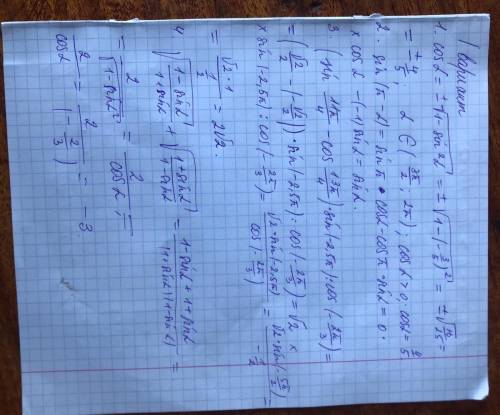 1 вариант
1. cos2 = ±√1-sin²2 = ±√1-(-3/5)² = ±√16/25 =
= ±4/5, 2 ∈ (3π/2; 2π), cos2>0. cos2=4/5.
2. sin(π-2) = sinπ · cos2 - cosπ · sin2 = 0 ·
× cos2 - (-1) sin2 = sin2.
3. (sin 11π/4 - cos 13π/4) · sin(-2,5π) : cos(-2π/3) =
= (√2/2 - (-√2/2)) · sin(-2,5π) : cos(-2π/3) = √2 ×
× sin(-2,5π) : cos(-2π/3) = √2 · sin(-2,5π) / cos(-2π/3) = √2 · sin(-5π/2) / -1/2 =
= √2 · 1 / 1/2 = 2√2.
4. √1-sin2/1+sin2 + √1+sin2/1-sin2 = 1-sin2+1+sin2 / √(1+sin2)(1-sin2) =
= 2/√1-sin²2 = 2/cos2;
2/cos2 = 2/(-2/3) = -3.